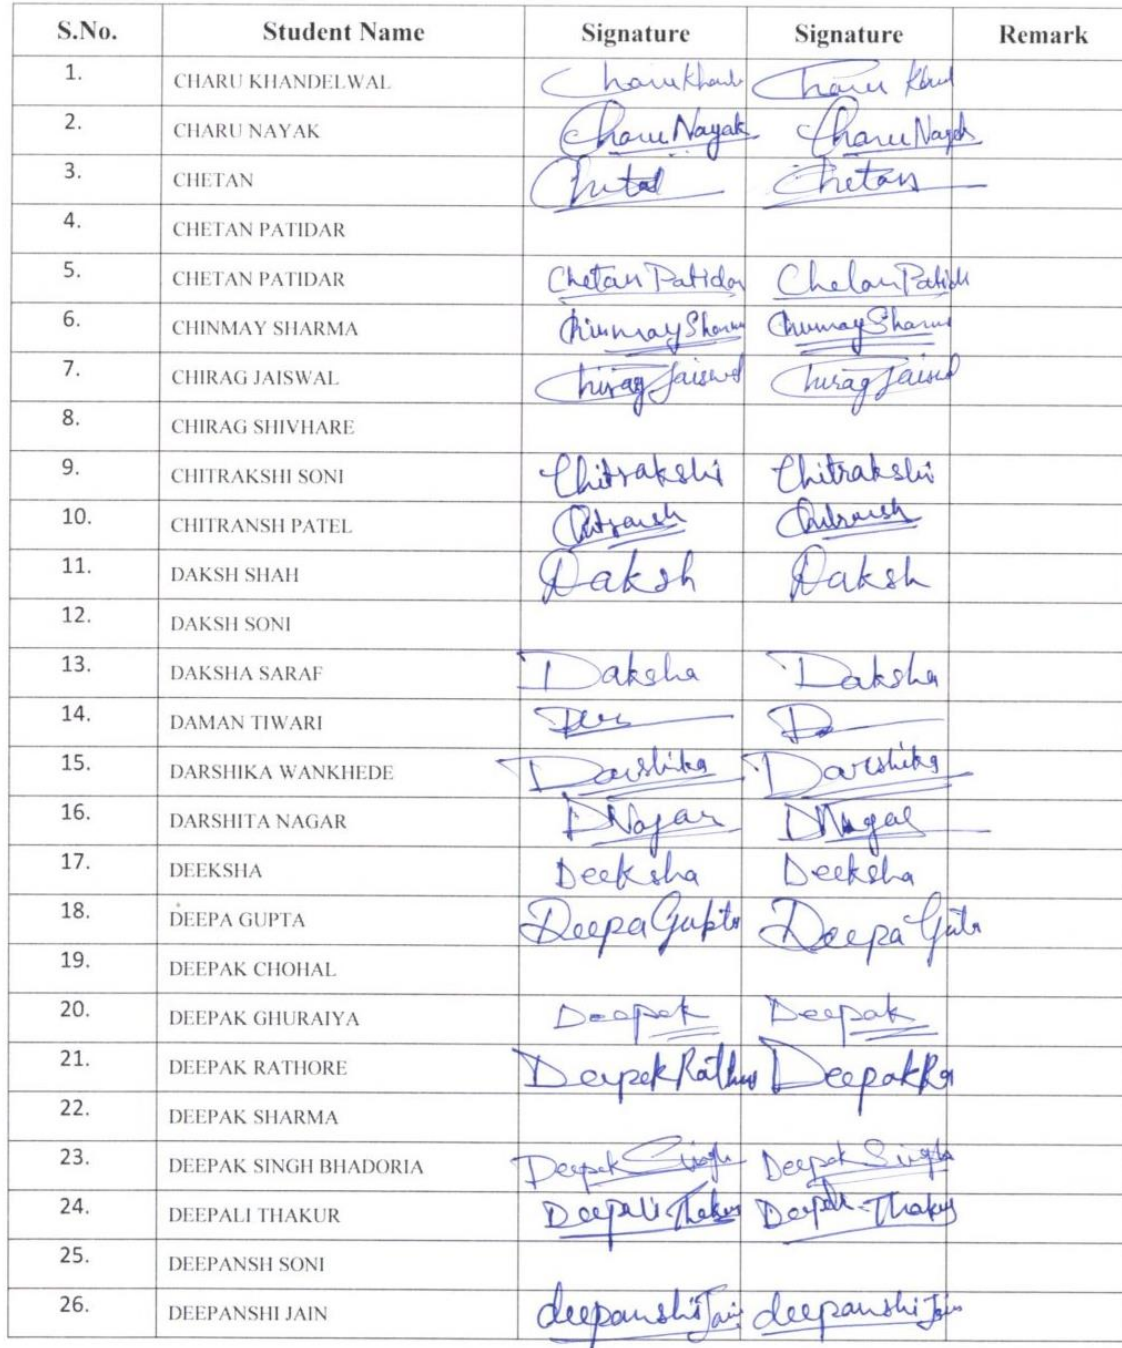 S.No. Student Name Signature Signature Remark
1. CHARU KHANDELWAL Charu Khande Charu Khand
2. CHARU NAYAK Charu Nayak Charu Nayak
3. CHETAN Chetan
4. CHETAN PATIDAR
5. CHETAN PATIDAR Chetan Patidar Chetan Patida
6. CHINMAY SHARMA Chinmay Sharma Chinmay Sharma
7. CHIRAG JAISWAL Chirag Jaiswal Chirag Jaiswal
8. CHIRAG SHIVHARE
9. CHITRAKSHI SONI Chitrakshi Chitrakshi
10. CHITRANSH PATEL Chitransh Chitransh
11. DAKSH SHAH Daksh Daksh
12. DAKSH SONI
13. DAKSHA SARAF Daksha Daksha
14. DAMAN TIWARI
15. DARSHIKA WANKHEDE Darshika Darshika
16. DARSHITA NAGAR DNagar DNagar
17. DEEKSHA Deeksha Deeksha
18. DEEPA GUPTA Deepa Gupta Deepa
19. DEEPAK CHOHAL
20. DEEPAK GHURAIYA Deepak Deepak
21. DEEPAK RATHORE Deepak Rathore Deepak Ra
22. DEEPAK SHARMA
23. DEEPAK SINGH BHADORIA Deepak Singh Deepak Singh
24. DEEPALI THAKUR Deepali Thakur Deepali Thakur
25. DEEPANSH SONI
26. DEEPANSHI JAIN deepanshi Jain deepanshi Jain